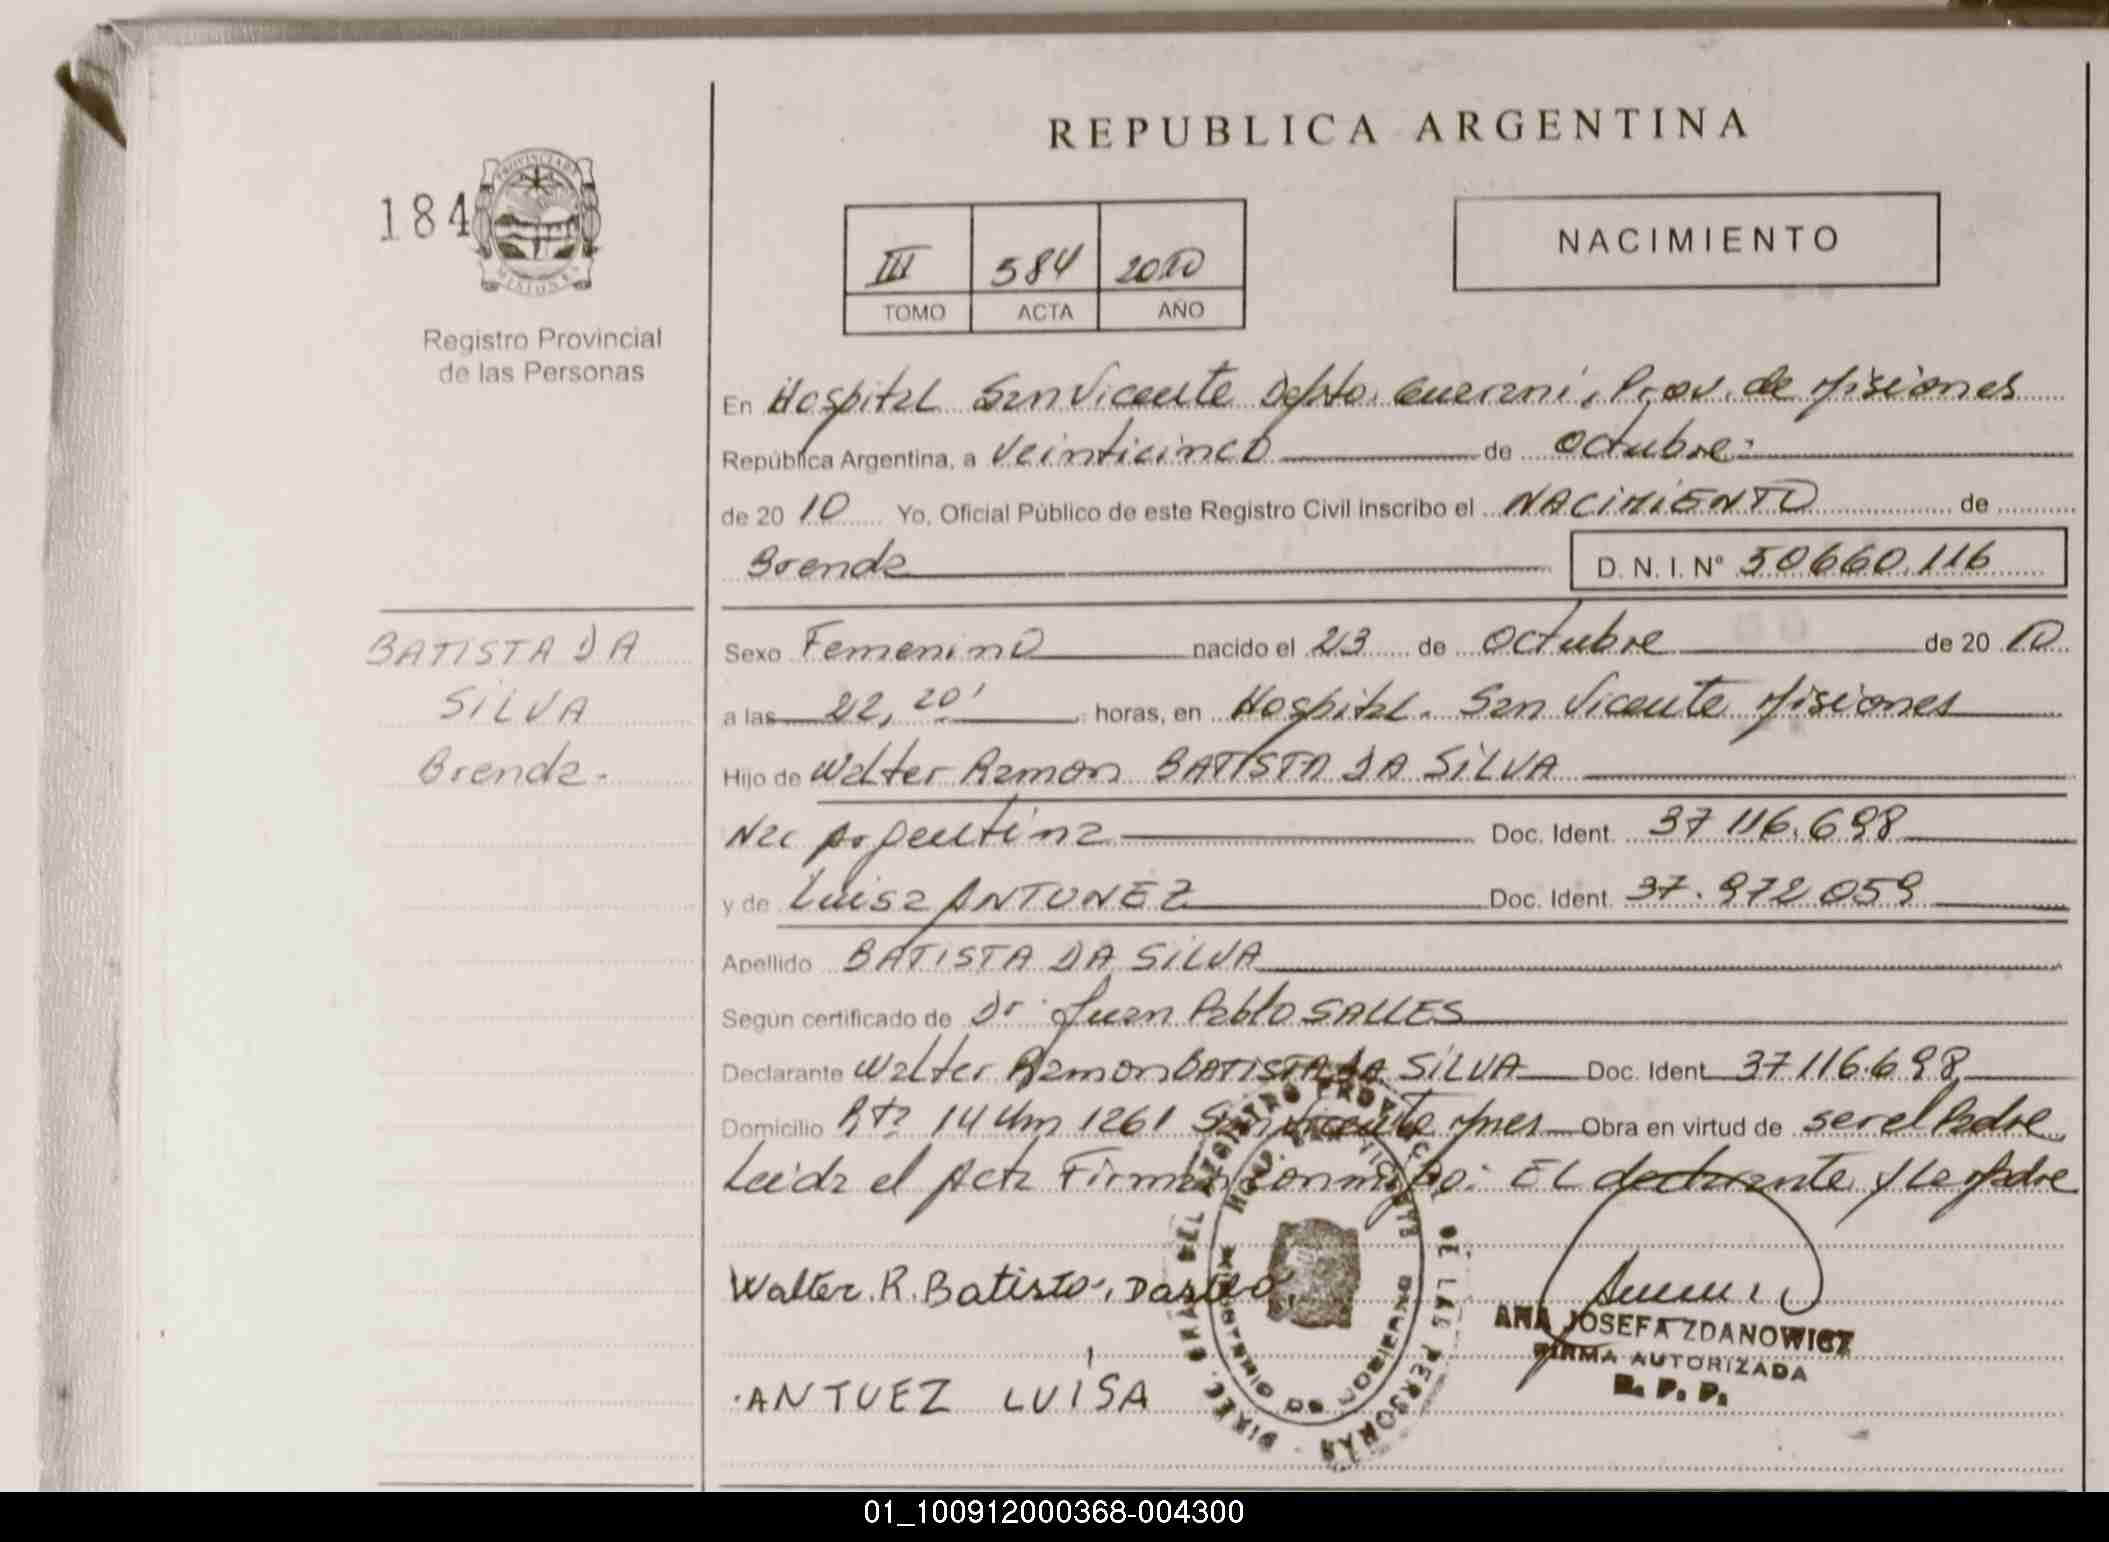 REPUBLICA ARGENTINA
184
PROVINCIA DE
MISIONES
Registro Provincial
de las Personas
III 584 2010
TOMO ACTA AÑO
NACIMIENTO
En Hospital San Vicente Depto. Guarani, Prov. de Misiones
República Argentina, a veinticinco de octubre
de 2010 Yo, Oficial Público de este Registro Civil inscribo el NACIMIENTO de
Brenda D.N.I. Nº 50660.116
BATISTA DA
SILVA
Brenda.
Sexo Femenino nacido el 23 de octubre de 2010
a las 22,20' horas, en Hospital. San Vicente Misiones
Hijo de Walter Ramon BATISTA DA SILVA
Nac Argentina Doc. Ident. 37116.698
y de Luisa ANTUNEZ Doc. Ident. 37.972059
Apellido BATISTA DA SILVA
Según certificado de Dr Juan Pablo SALLES
Declarante Walter Ramon BATISTA DA SILVA Doc. Ident 37116.698
Domicilio Rta 14 Km 1261 San Vicente Mnes Obra en virtud de ser el Padre
Leida el Acta Firman conmigo: EL declarante y la Madre
Walter. R. Batista, Dasilva
ANTUEZ LUISA
ANA JOSEFA ZDANOWICZ
FIRMA AUTORIZADA
R. P. P.
DIREC. GRAL DEL REGISTRO PROVINCIAL DE LAS PERSONAS
01_100912000368-004300